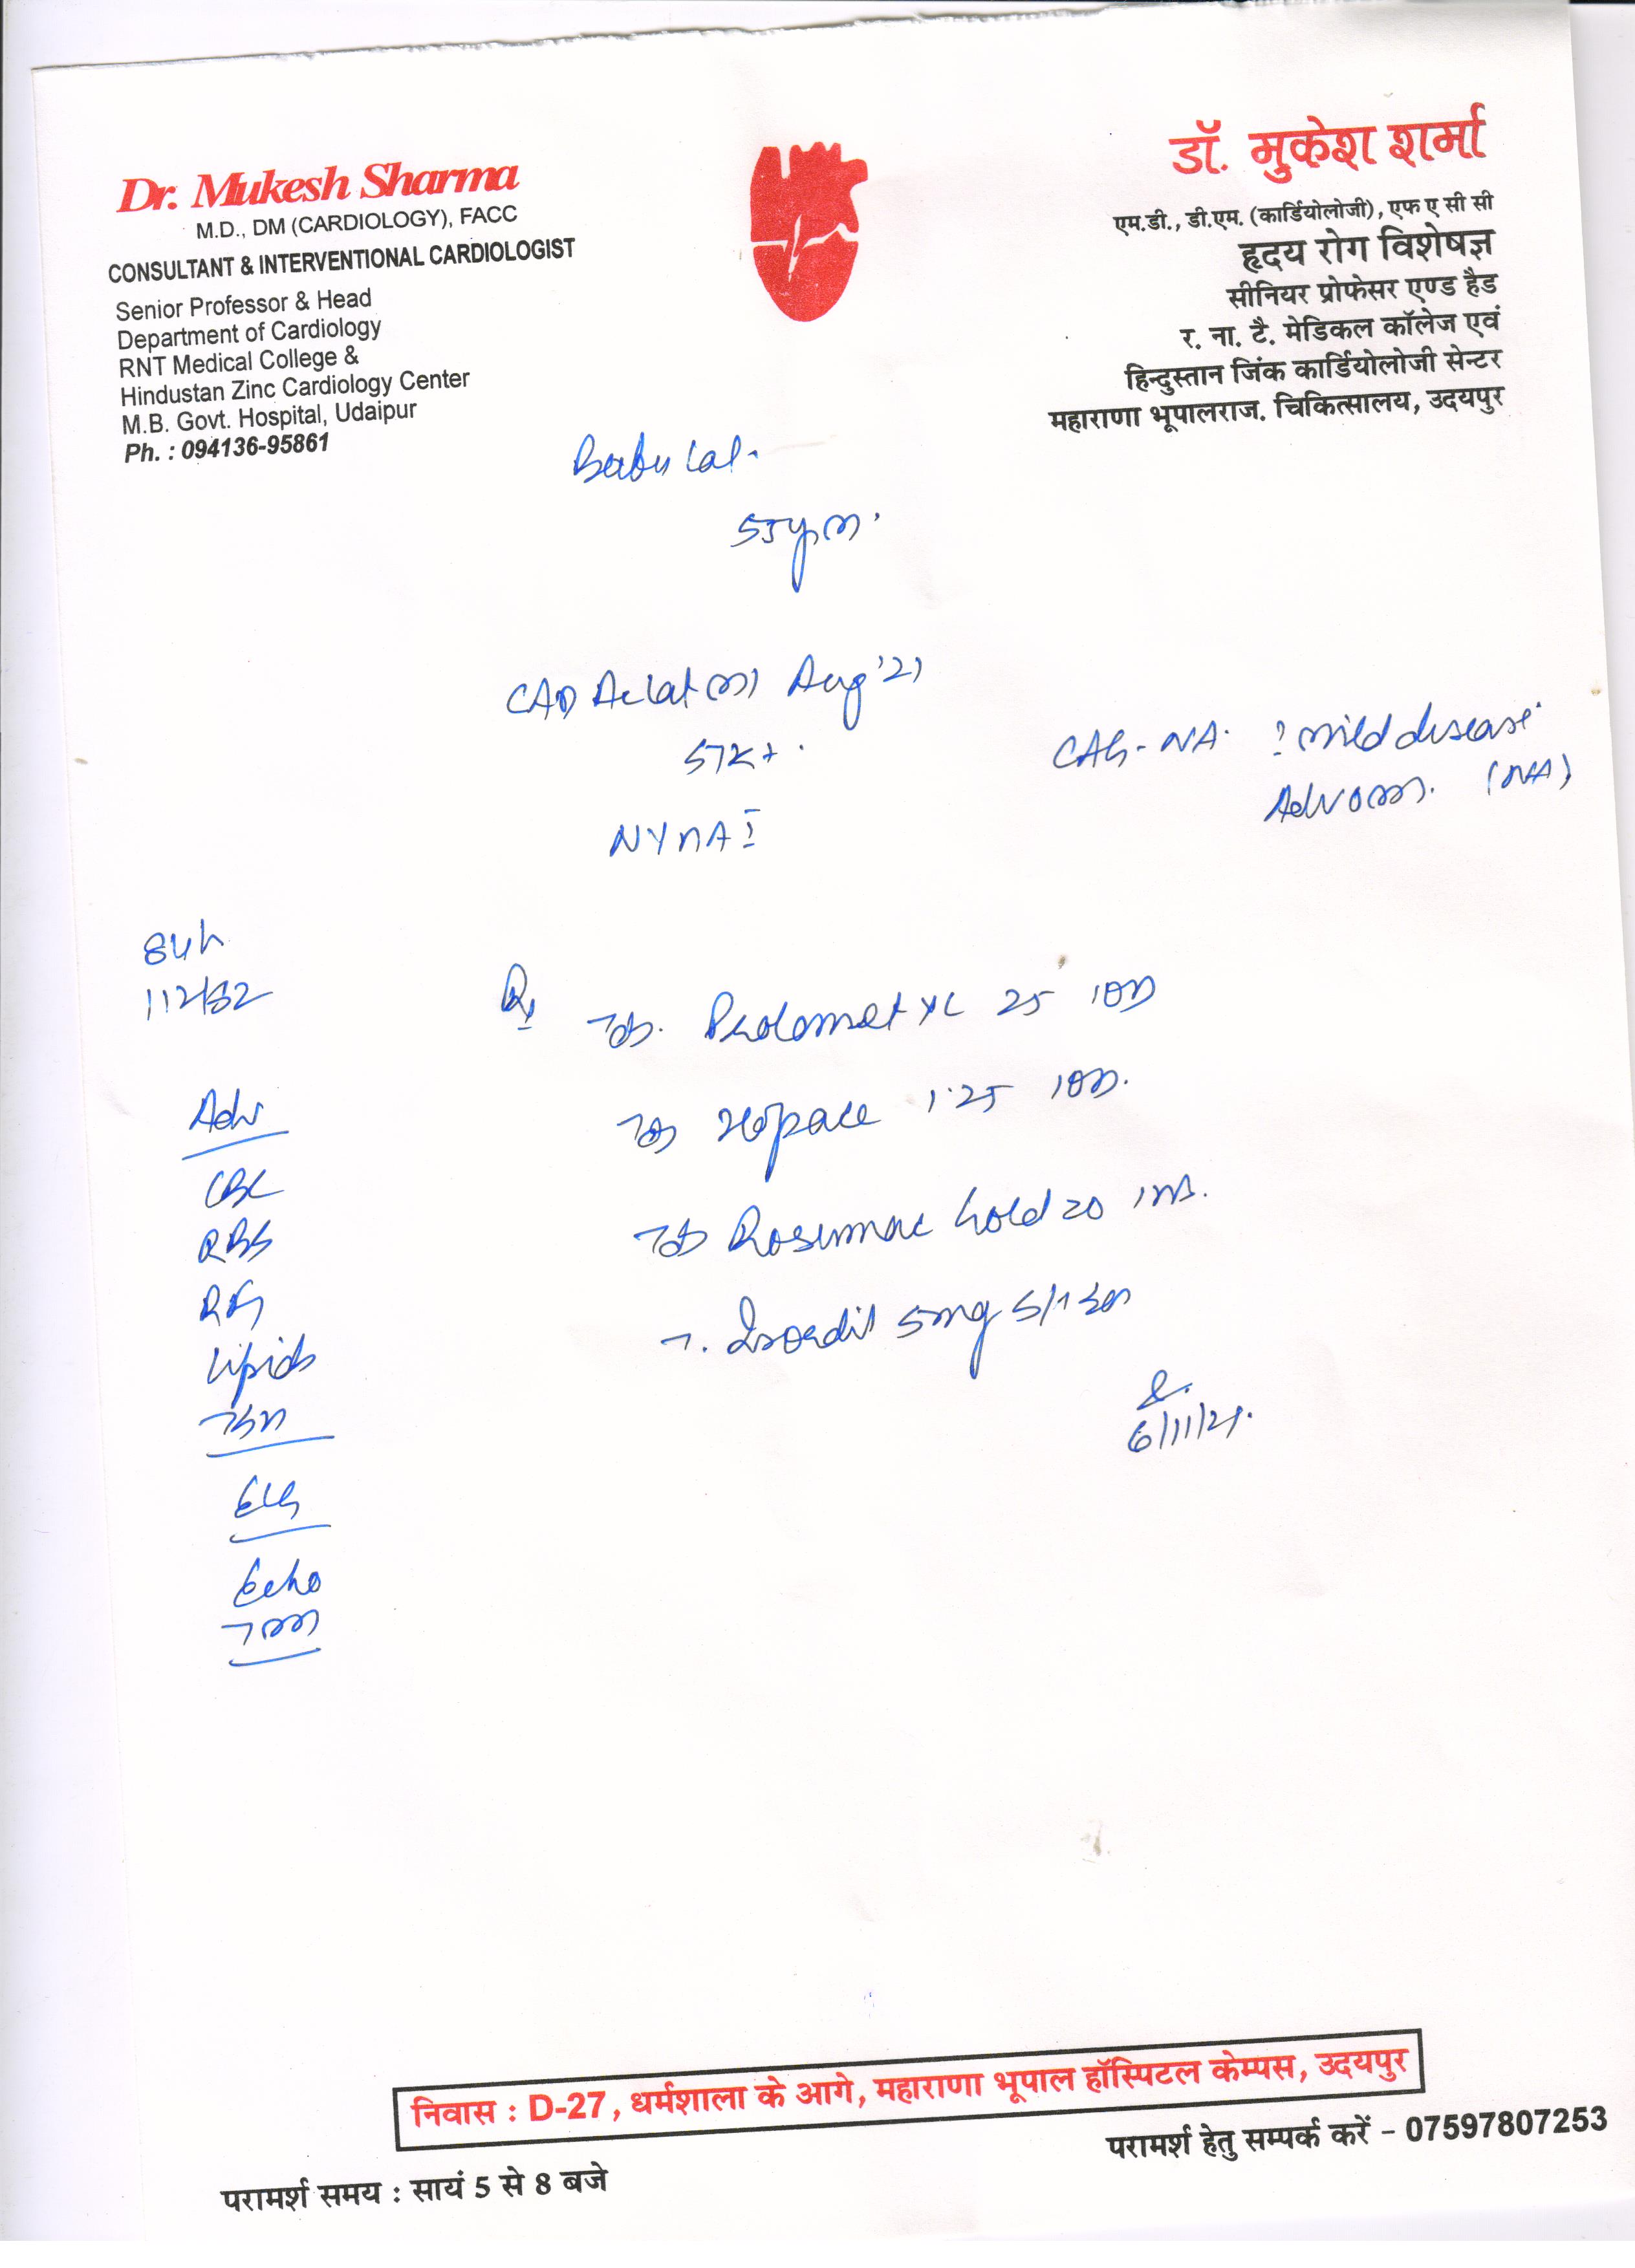 Dr. Mukesh Sharma
M.D., DM (CARDIOLOGY), FACC
CONSULTANT & INTERVENTIONAL CARDIOLOGIST
Senior Professor & Head
Department of Cardiology
RNT Medical College &
Hindustan Zinc Cardiology Center
M.B. Govt. Hospital, Udaipur
Ph. : 094136-95861
डॉ. मुकेश शर्मा
एम.डी., डी.एम. (कार्डियोलोजी), एफ ए सी सी
हृदय रोग विशेषज्ञ
सीनियर प्रोफेसर एण्ड हैड
र. ना. टै. मेडिकल कॉलेज एवं
हिन्दुस्तान जिंक कार्डियोलोजी सेन्टर
महाराणा भूपालराज. चिकित्सालय, उदयपुर
Babu Lal.
55y m.
CAD Ac Lat MI Aug '21
STK+.
NYHA I
CAG - NA. ? mild disease.
Adv OMM. (NA)
84/
112/82
Adv
CBC
RBS
RFT
Lipids
TSH
ECG
Echo
TMT
Rx Tab. Prolomet XL 25 1 OD
Tab Hopace 1.25 1 OD.
Tab Rosumac Gold 20 1 HS.
T. Isordil 5mg S/L SOS
6/11/21.
निवास : D-27, धर्मशाला के आगे, महाराणा भूपाल हॉस्पिटल केम्पस, उदयपुर
परामर्श हेतु सम्पर्क करें - 07597807253
परामर्श समय : सायं 5 से 8 बजे